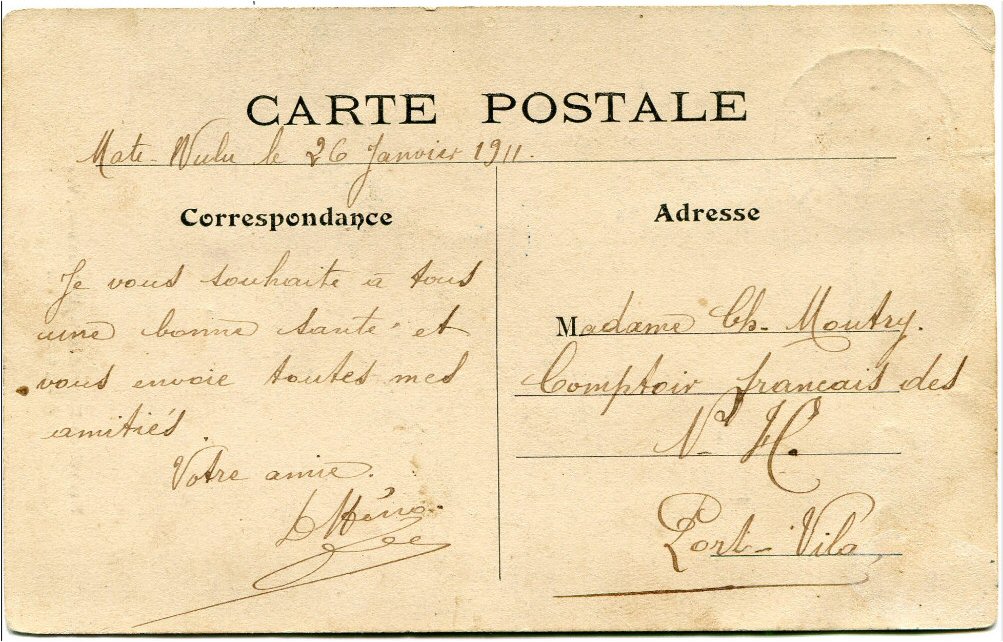 CARTE POSTALE
Mate-Wulu le 26 Janvier 1911.
Correspondance
Je vous souhaite à tous
une bonne santé et
vous envoie toutes mes
amitiés.
Votre amie.
Adresse
Madame Ch. Moutry.
Comptoir français des
N. H.
Port-Vila